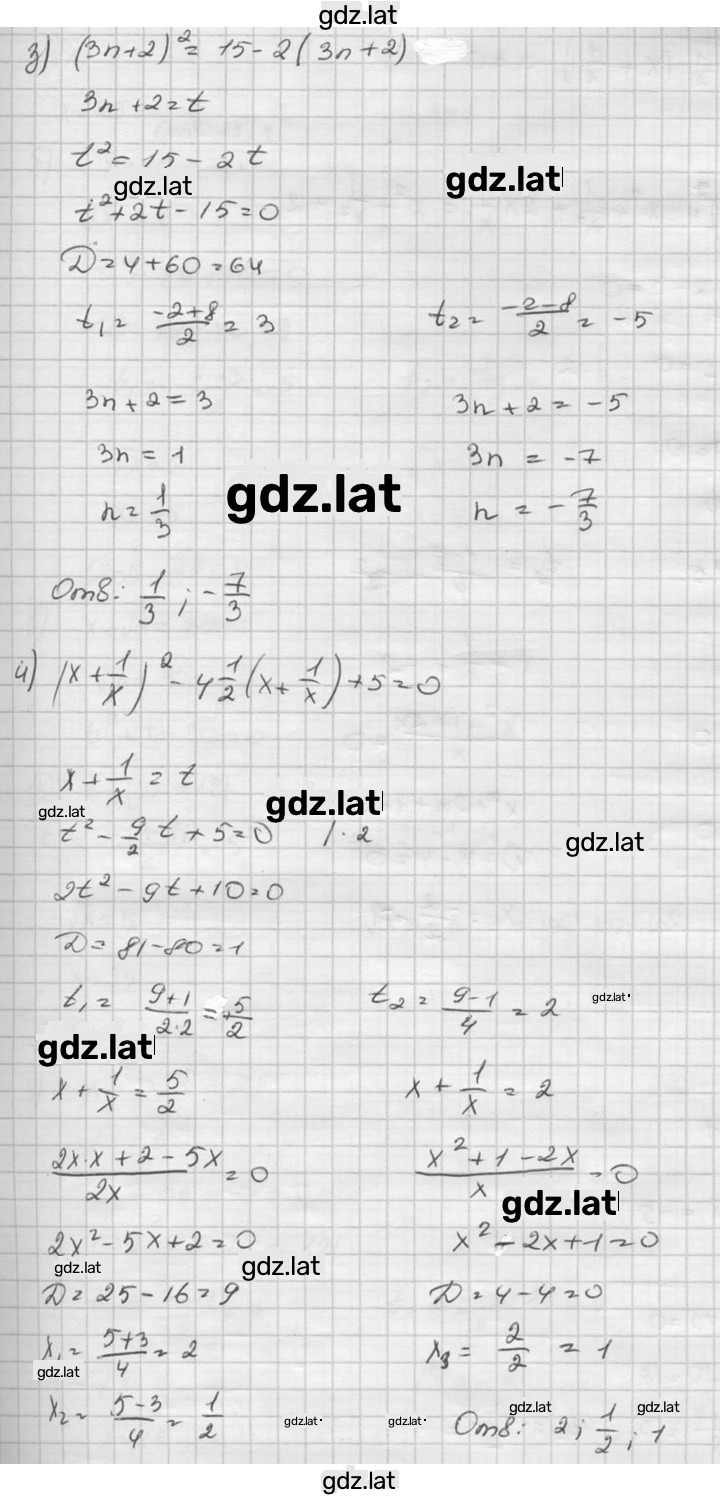 gdz.lat
з) (3n+2)² = 15-2(3n+2)
3n+2=t
t²=15-2t
gdz.lat gdz.lat
t²+2t-15=0
D=4+60=64
t₁= (-2+8)/2 = 3 t₂= (-2-8)/2 = -5
3n+2=3 3n+2=-5
3n=1 3n=-7
gdz.lat
n=1/3 n=-7/3
Отв: 1/3; -7/3
и) (x+1/x)² - 4 1/2 (x+1/x)+5=0
x+1/x=t
gdz.lat gdz.lat
t²-9/2 t+5=0 |·2
gdz.lat
2t²-9t+10=0
D=81-80=1
t₁= (9+1)/(2·2) = +5/2 t₂= (9-1)/4 = 2 gdz.lat
gdz.lat
x+1/x=5/2 x+1/x=2
(2x·x+2-5x)/2x=0 (x²+1-2x)/x=0
gdz.lat
2x²-5x+2=0 x²-2x+1=0
gdz.lat gdz.lat
D=25-16=9 D=4-4=0
x₁= (5+3)/4 = 2 x₃= 2/2 = 1
gdz.lat
x₂= (5-3)/4 = 1/2 gdz.lat gdz.lat gdz.lat gdz.lat
Отв: 2; 1/2; 1
gdz.lat